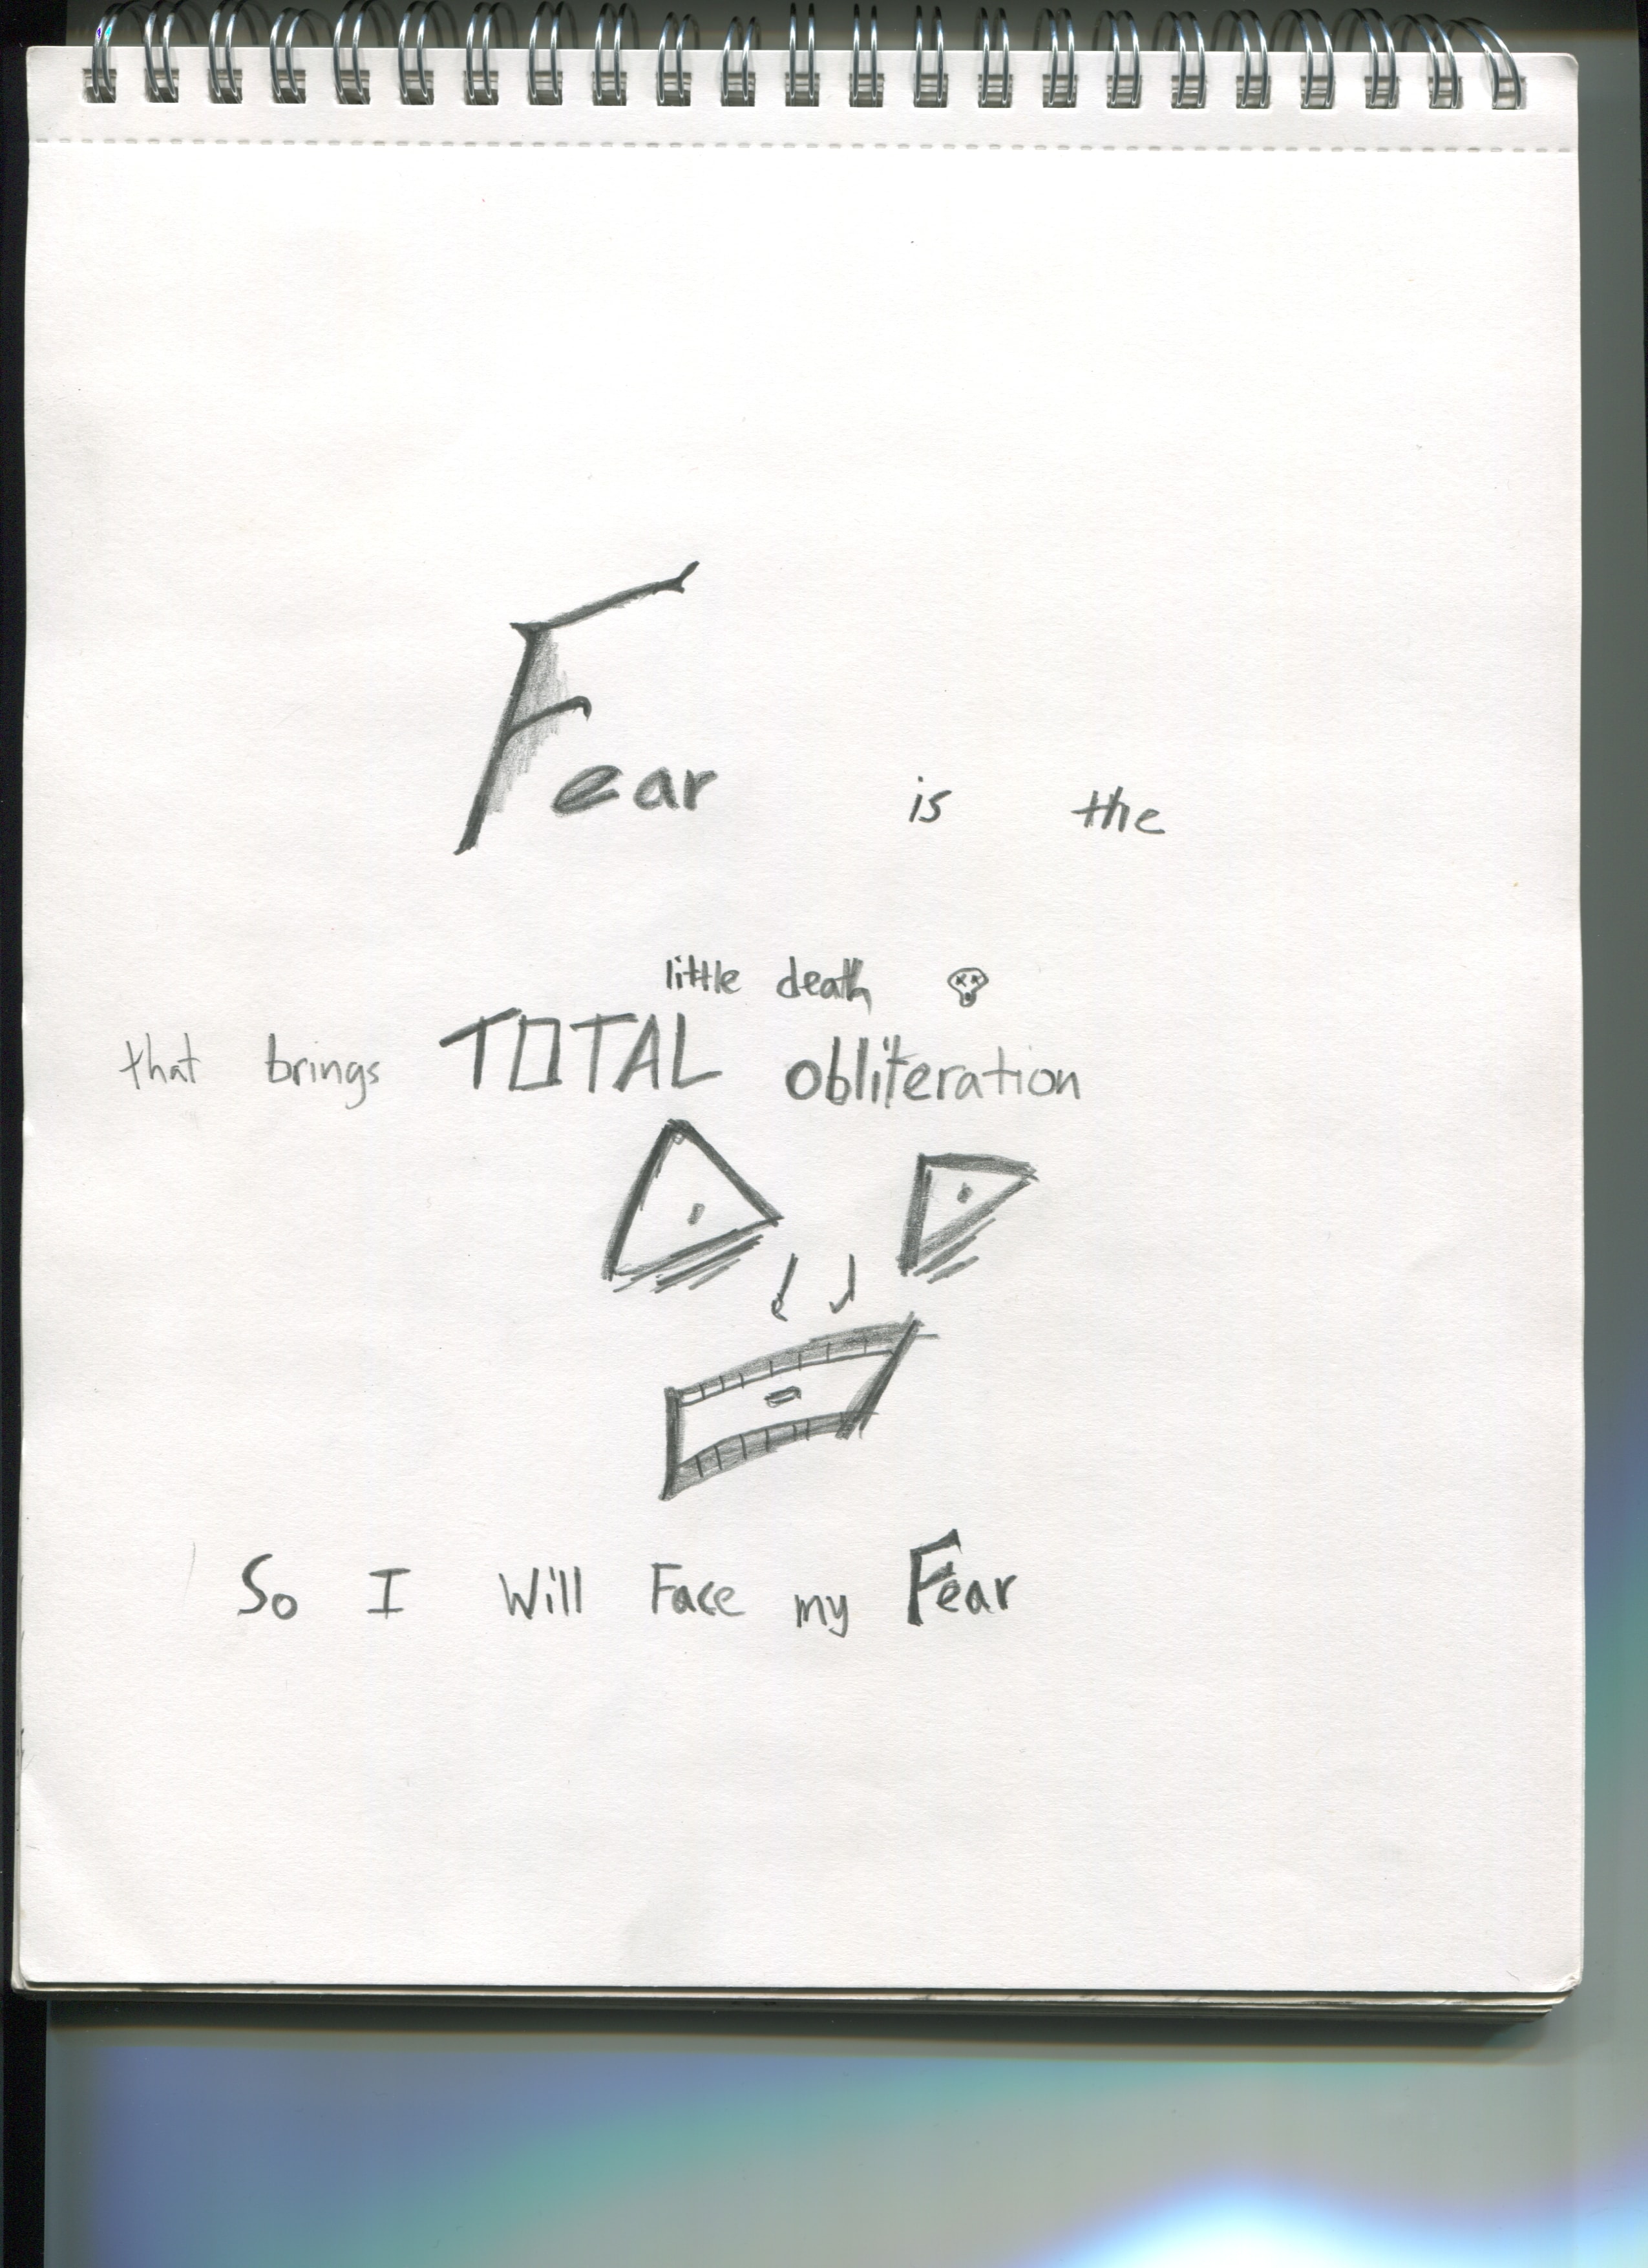 Fear is the
little death
that brings TOTAL obliteration
So I Will Face my Fear